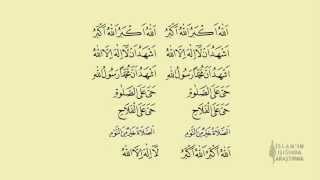 اَللّٰهُ اَكْبَرُ اَللّٰهُ اَكْبَرُ اَللّٰهُ اَكْبَرُ اَللّٰهُ اَكْبَرُ
اَشْهَدُ اَنْ لَٓا اِلٰهَ اِلَّا اللّٰهُ اَشْهَدُ اَنْ لَٓا اِلٰهَ اِلَّا اللّٰهُ
اَشْهَدُ اَنَّ مُحَمَّدًا رَسُولُ اللّٰهِ اَشْهَدُ اَنَّ مُحَمَّدًا رَسُولُ اللّٰهِ
حَيَّ عَلَى الصَّلٰوةِ حَيَّ عَلَى الصَّلٰوةِ
حَيَّ عَلَى الْفَلَاحِ حَيَّ عَلَى الْفَلَاحِ
اَلصَّلَاةُ خَيْرٌ مِنَ النَّوْمِ اَلصَّلَاةُ خَيْرٌ مِنَ النَّوْمِ
اَللّٰهُ اَكْبَرُ اَللّٰهُ اَكْبَرُ لَٓا اِلٰهَ اِلَّا اللّٰهُ
İSLAM'IN
IŞIĞINDA
ARAŞTIRMA